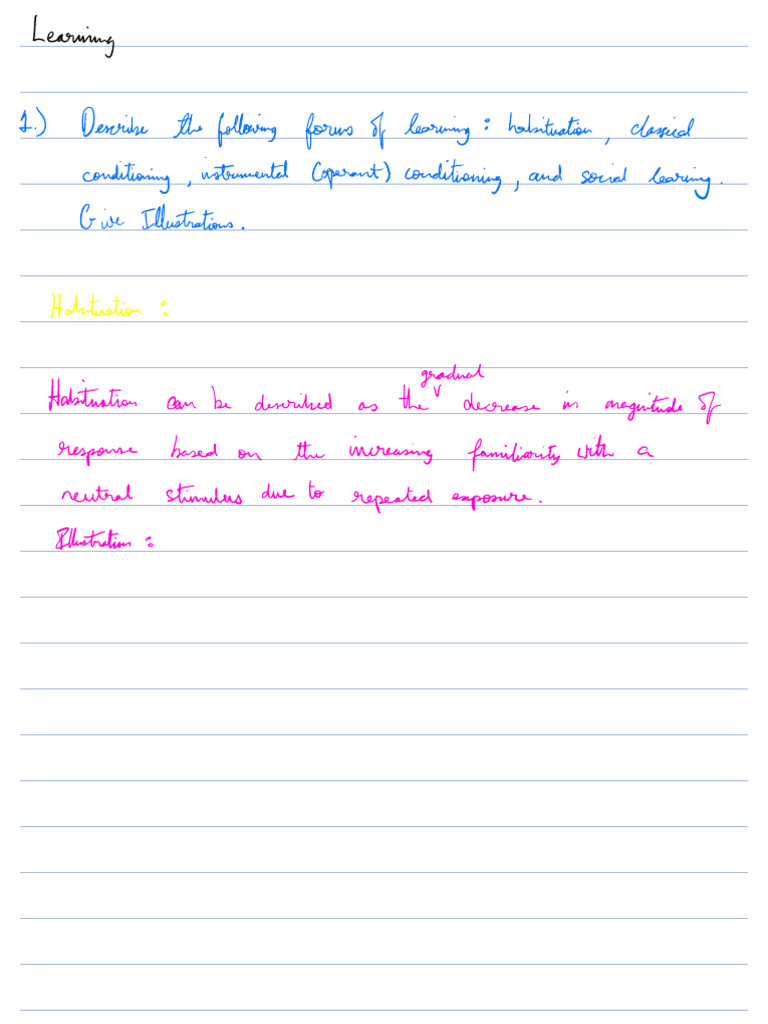 Learning
1.) Describe the following forms of learning: habituation, classical
conditioning, instrumental (operant) conditioning, and social learning.
Give Illustrations.
Habituation :
gradual
Habituation can be described as the decrease in magnitude of
response based on the increasing familiarity with a
neutral stimulus due to repeated exposure.
Illustration :